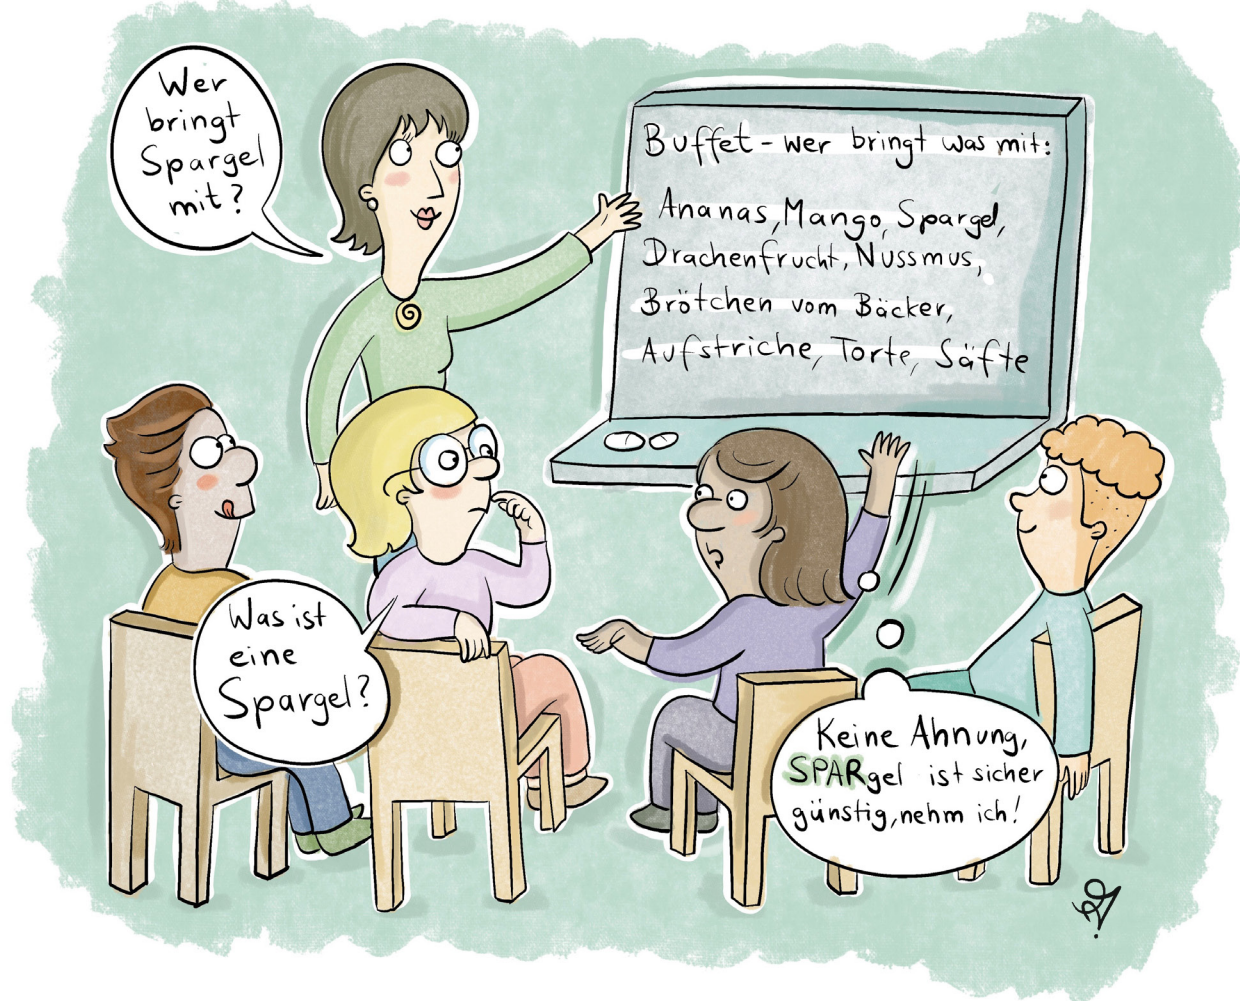 Wer
bringt
Spargel
mit?
Buffet - wer bringt was mit:
Ananas, Mango, Spargel,
Drachenfrucht, Nussmus,
Brötchen vom Bäcker,
Aufstriche, Torte, Säfte
Was ist
eine
Spargel?
Keine Ahnung,
SPARgel ist sicher
günstig, nehm ich!